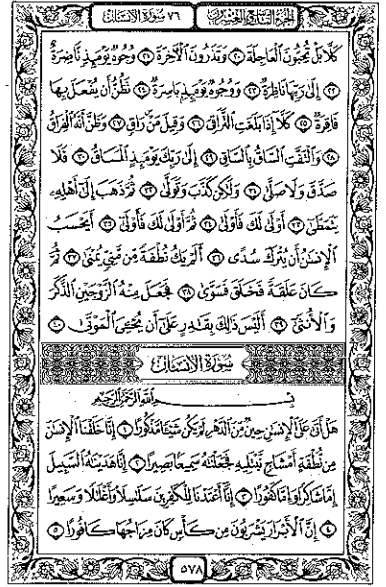 الجزء التاسع والعشرون ٧٦ سورة الإنسان
كَلَّا بَلْ تُحِبُّونَ الْعَاجِلَةَ ٢٠ وَتَذَرُونَ الْآخِرَةَ ٢١ وُجُوهٌ يَوْمَئِذٍ نَاضِرَةٌ
٢٢ إِلَى رَبِّهَا نَاظِرَةٌ ٢٣ وَوُجُوهٌ يَوْمَئِذٍ بَاسِرَةٌ ٢٤ تَظُنُّ أَنْ يُفْعَلَ بِهَا
فَاقِرَةٌ ٢٥ كَلَّا إِذَا بَلَغَتِ التَّرَاقِيَ ٢٦ وَقِيلَ مَنْ رَاقٍ ٢٧ وَظَنَّ أَنَّهُ الْفِرَاقُ
٢٨ وَالْتَفَّتِ السَّاقُ بِالسَّاقِ ٢٩ إِلَى رَبِّكَ يَوْمَئِذٍ الْمَسَاقُ ٣٠ فَلَا
صَدَّقَ وَلَا صَلَّى ٣١ وَلَكِنْ كَذَّبَ وَتَوَلَّى ٣٢ ثُمَّ ذَهَبَ إِلَى أَهْلِهِ
يَتَمَطَّى ٣٣ أَوْلَى لَكَ فَأَوْلَى ٣٤ ثُمَّ أَوْلَى لَكَ فَأَوْلَى ٣٥ أَيَحْسَبُ
الْإِنْسَانُ أَنْ يُتْرَكَ سُدًى ٣٦ أَلَمْ يَكُ نُطْفَةً مِنْ مَنِيٍّ يُمْنَى ٣٧ ثُمَّ
كَانَ عَلَقَةً فَخَلَقَ فَسَوَّى ٣٨ فَجَعَلَ مِنْهُ الزَّوْجَيْنِ الذَّكَرَ
وَالْأُنْثَى ٣٩ أَلَيْسَ ذَلِكَ بِقَادِرٍ عَلَى أَنْ يُحْيِيَ الْمَوْتَى ٤٠
سورة الإنسان
بِسْمِ اللَّهِ الرَّحْمَنِ الرَّحِيمِ
هَلْ أَتَى عَلَى الْإِنْسَانِ حِينٌ مِنَ الدَّهْرِ لَمْ يَكُنْ شَيْئًا مَذْكُورًا ١ إِنَّا خَلَقْنَا الْإِنْسَانَ
مِنْ نُطْفَةٍ أَمْشَاجٍ نَبْتَلِيهِ فَجَعَلْنَاهُ سَمِيعًا بَصِيرًا ٢ إِنَّا هَدَيْنَاهُ السَّبِيلَ
إِمَّا شَاكِرًا وَإِمَّا كَفُورًا ٣ إِنَّا أَعْتَدْنَا لِلْكَافِرِينَ سَلَاسِلَا وَأَغْلَالًا وَسَعِيرًا
٤ إِنَّ الْأَبْرَارَ يَشْرَبُونَ مِنْ كَأْسٍ كَانَ مِزَاجُهَا كَافُورًا ٥
٥٧٨